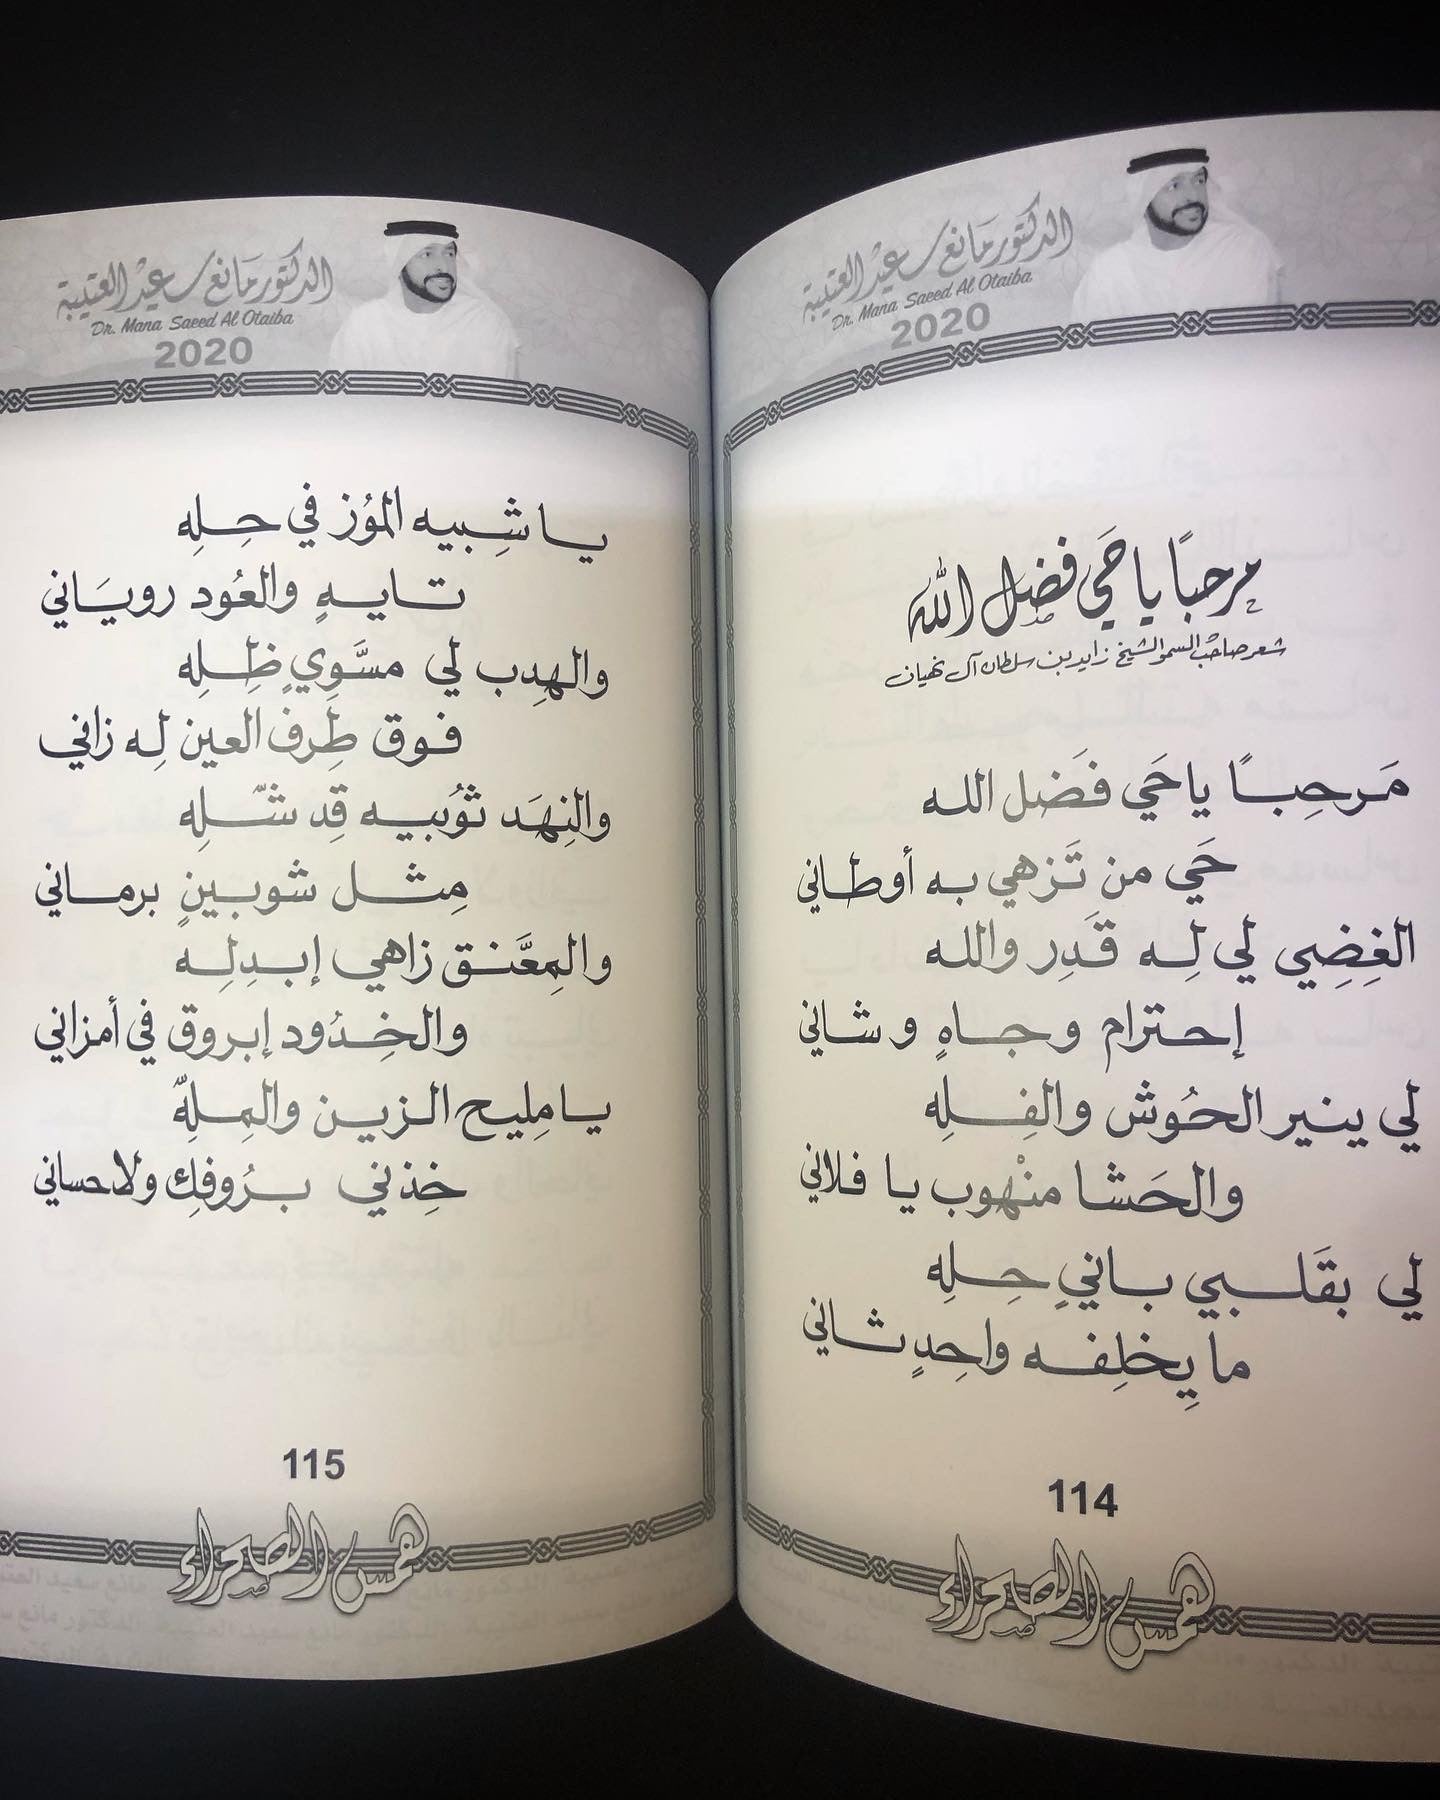 الدكتور مانع سعيد العتيبة
Dr. Mana Saeed Al Otaiba
2020
مرحبًا يا حَي فضل الله
شعر صاحب السمو الشيخ زايد بن سلطان آل نهيان
مَرحِبًا ياحَي فَضل الله
حَي من تَزهي به أوطاني
الغِضِي لي لِه قَدِر والله
إحترام وجاهٍ وشاني
لي ينير الحُوش والفِلِه
والحَشا منْهوب يا فلاني
لي بقَلبي بانيٍ حِلِه
ما يِخلِفه واحِدٍ ثاني
114
همس الصحراء
الدكتور مانع سعيد العتيبة
Dr. Mana Saeed Al Otaiba
2020
يا شِبيه المُوز في حِلِه
تايهٍ والعُود رويَاني
والهِدب لي مسَّوِيٍ ظِلِه
فوق طِرف العين لِه زافي
والنِهَد ثوُبيه قِد شّلِه
مِثل شوبينٍ برماني
والمِعَّنق زاهي إبدِلِه
والخِدُود إبروق في أمزاني
يا مِليح الزين والمِلِهّ
خِذني برُوفِك ولاحساني
115
همس الصحراء